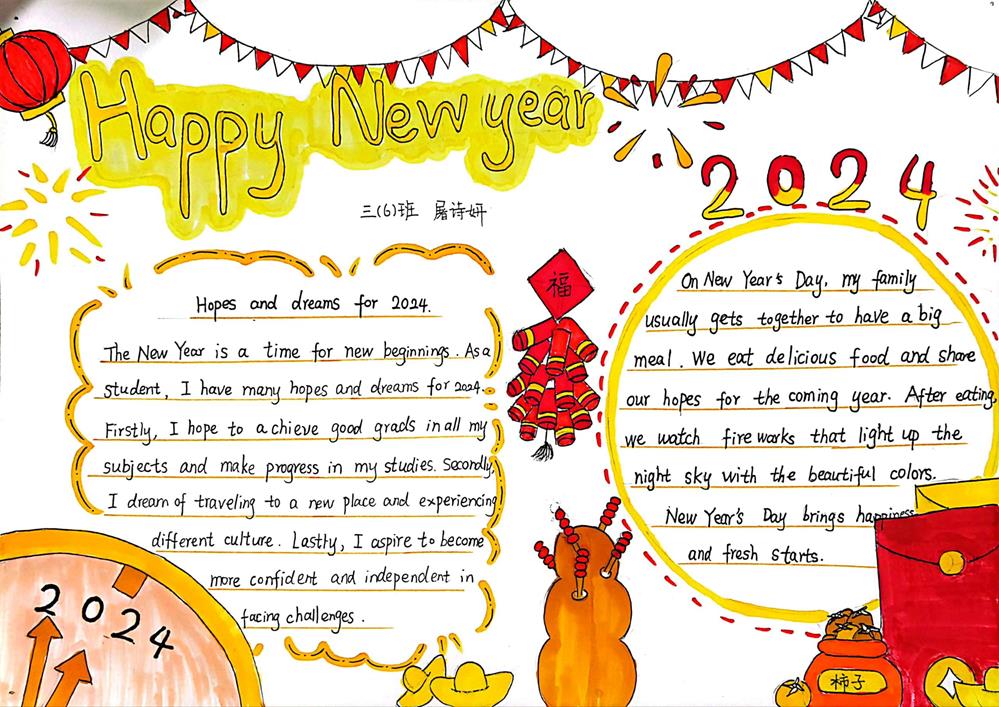 Happy New year
2024
三(6)班 屠诗妍
Hopes and dreams for 2024.
The New Year is a time for new beginnings. As a
student, I have many hopes and dreams for 2024.
Firstly, I hope to achieve good grads in all my
subjects and make progress in my studies. Secondly,
I dream of traveling to a new place and experiencing
different culture. Lastly, I aspire to become
more confident and independent in
facing challenges.
福
On New Year's Day, my family
usually gets together to have a big
meal. We eat delicious food and share
our hopes for the coming year. After eating,
we watch fireworks that light up the
night sky with the beautiful colors.
New Year's Day brings happiness
and fresh starts.
2024
柿子